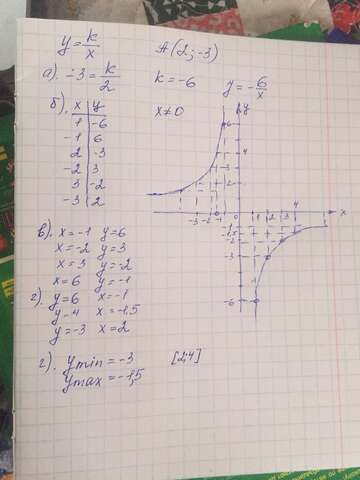 y = k/x A(2; -3)
а). -3 = k/2 k = -6 y = -6/x
б). x y x≠0
1 -6
-1 6
2 -3
-2 3
3 -2
-3 2
y
6
4
3
2
-3 -2 -1 0 1 2 3 4 x
-1
-2
-3
-6
в). x = -1 y = 6
x = -2 y = 3
x = 3 y = -2
x = 6 y = -1
г). y = 6 x = -1
y = 4 x = -1,5
y = -3 x = 2
г). ymin = -3 [2;4]
ymax = -1,5